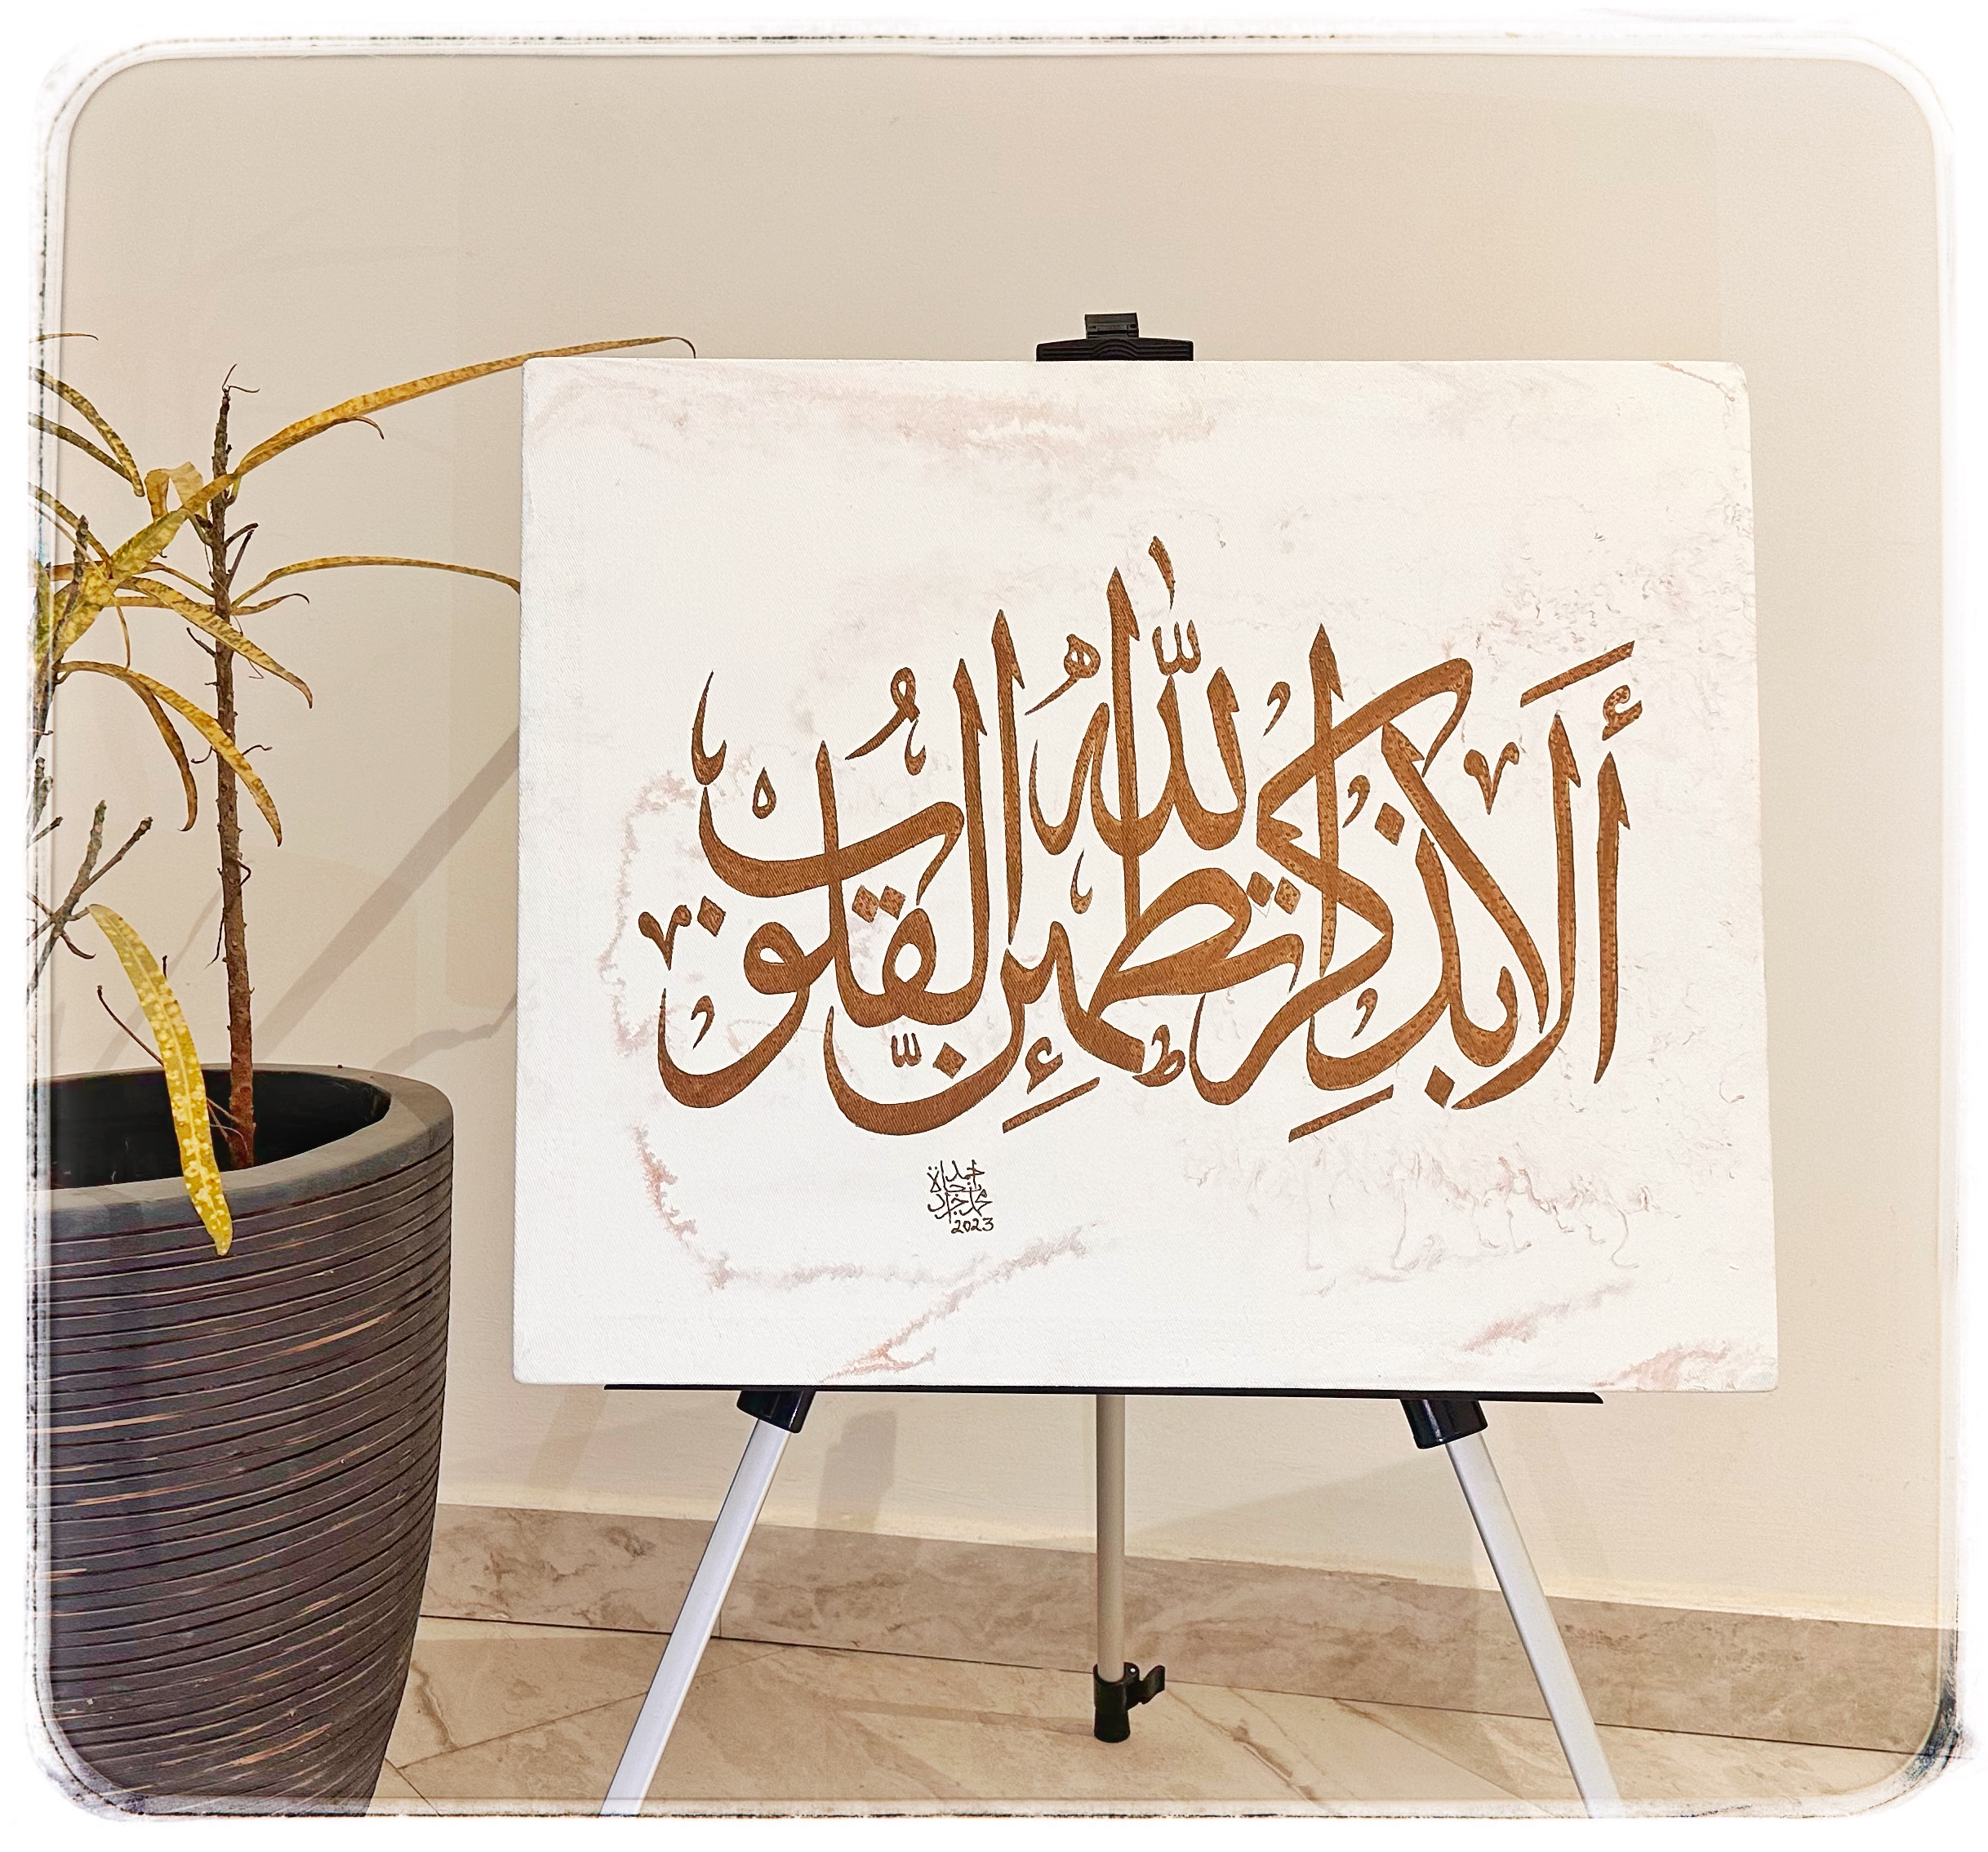 ألا بذكر الله تطمئن القلوب
2023